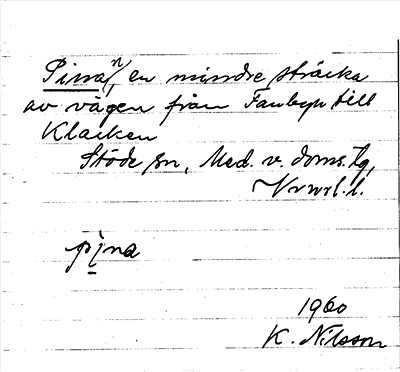 Pina/n, en mindre sträcka
av vägen från Fanbyn till
Klacken
Stöde sn, Med. v. doms. tg,
Vnrl. l.
pina
1960
K. Nilsson